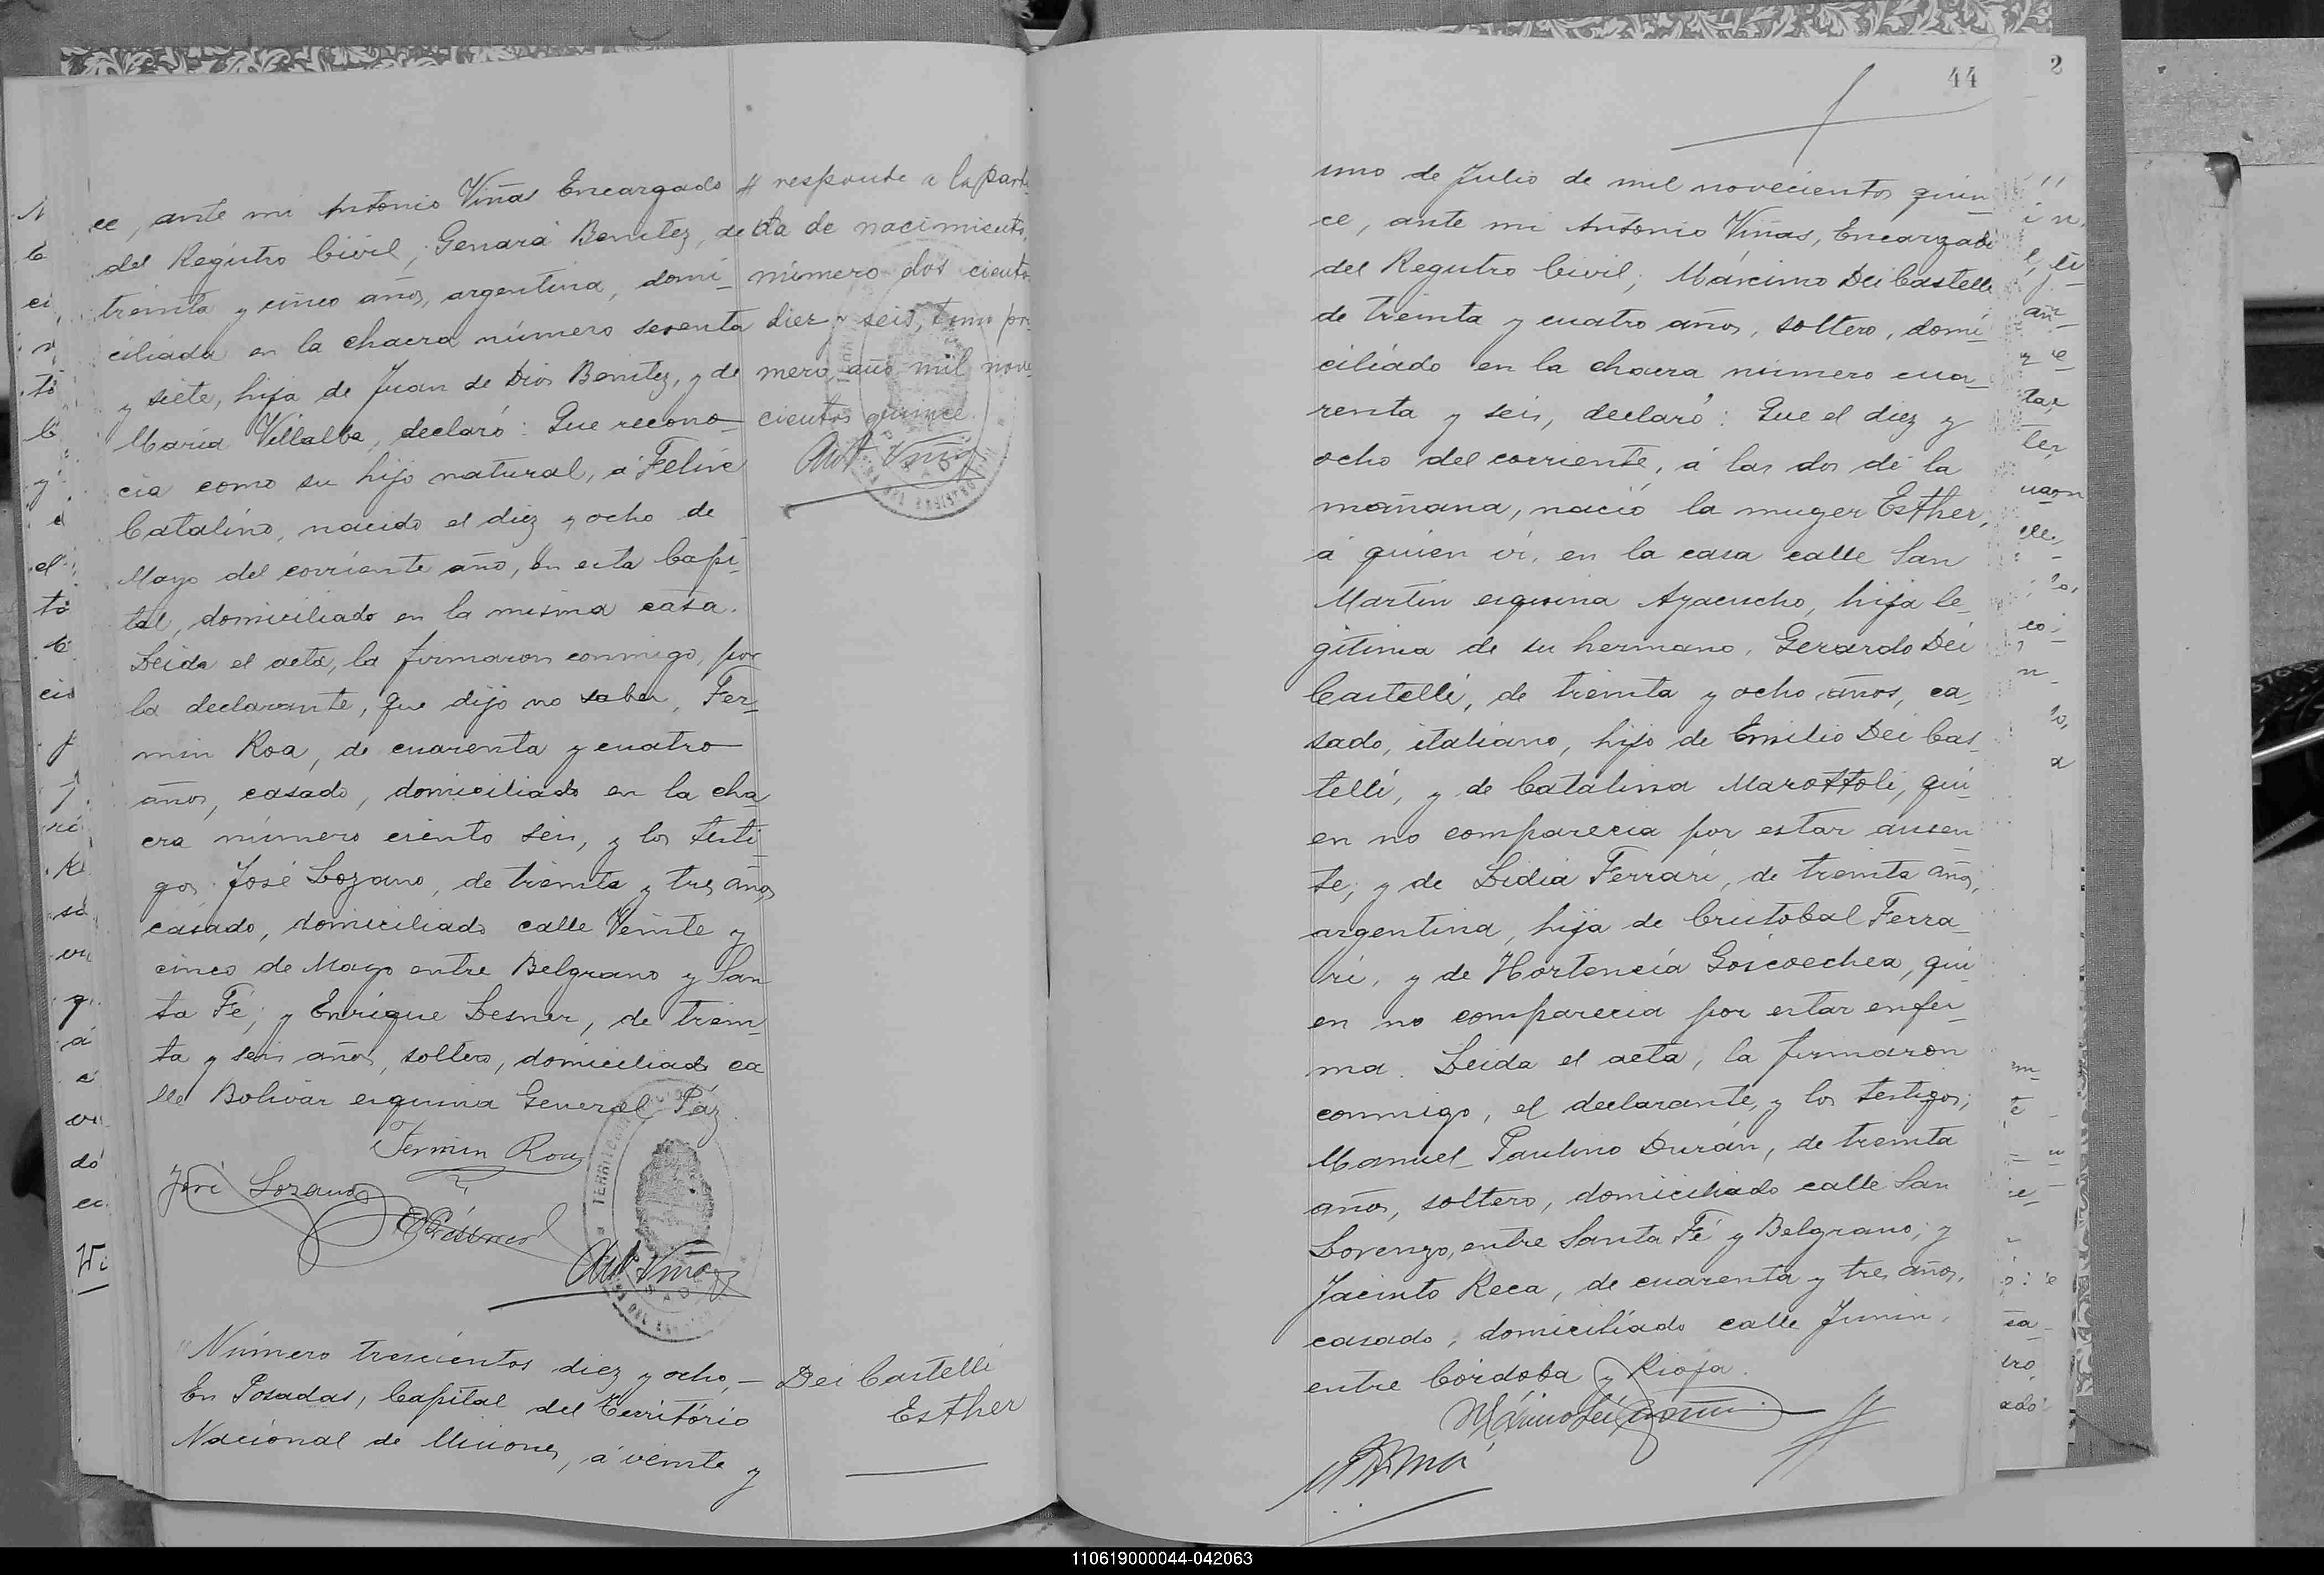 ce, ante mi Antonio Viñas Encargado
del Registro Civil, Genara Benitez, de
treinta y cinco años, argentina, domi-
ciliada en la chacra número sesenta
y siete, hija de Juan de Dios Benitez, y de
Maria Villalba, declaró: Que recono-
cia como su hijo natural, á Felix
Catalino, nacido el diez y ocho de
Mayo del corriente año, en esta Capi-
tal, domiciliado en la misma casa.
Leida el acta, la firmaron conmigo, por
la declarante, que dijo no saber, Fer-
min Roa, de cuarenta y cuatro
años, casado, domiciliado en la cha-
cra número ciento seis, y los testi-
gos José Lozano, de treinta y tres años
casado, domiciliado calle Veinte y
cinco de Mayo entre Belgrano y San-
ta Fé; y Enrique Lesner, de trein-
ta y seis años, soltero, domiciliado ca-
lle Bolivar esquina General Paz.
Fermin Roa
José Lozano
Ant Viñas
# responde a la parti-
da de nacimiento
número dos cientos
diez y seis, tomo pri-
mero, año mil nove-
cientos quince.
Ant Viñas
Número trescientos diez y ocho,—
En Posadas, Capital del Território
Nacional de Misiones, á veinte y
Dei Castelli
Esther
44
2
uno de Julio de mil novecientos quin-
ce, ante mi Antonio Viñas, Encargado
del Registro Civil; Máximo Dei Castelli
de treinta y cuatro años, soltero, domi-
ciliado en la chacra número cua-
renta y seis, declaró: Que el diez y
ocho del corriente, á las dos de la
mañana, nació la muger Esther,
á quien vi, en la casa calle San
Martin esquina Ayacucho, hija le-
gitima de su hermano, Gerardo Dei
Castelli, de treinta y ocho años, ca-
sado, italiano, hijo de Emilio Dei Cas-
telli, y de Catalina Marottoli, qui-
en no comparecia por estar ausen-
te; y de Lidia Ferrari, de treinta años,
argentina, hija de Cristobal Ferra-
ri, y de Hortencia Goicoechea, qui-
en no comparecia por estar enfer-
ma. Leida el acta, la firmaron
conmigo, el declarante, y los testigos;
Manuel Paulino Durán, de treinta
años, soltero, domiciliado calle San
Lorenzo, entre Santa Fé y Belgrano; y
Jacinto Reca, de cuarenta y tres años,
casado, domiciliado calle Junin,
entre Córdoba y Rioja.
110619000044-042063